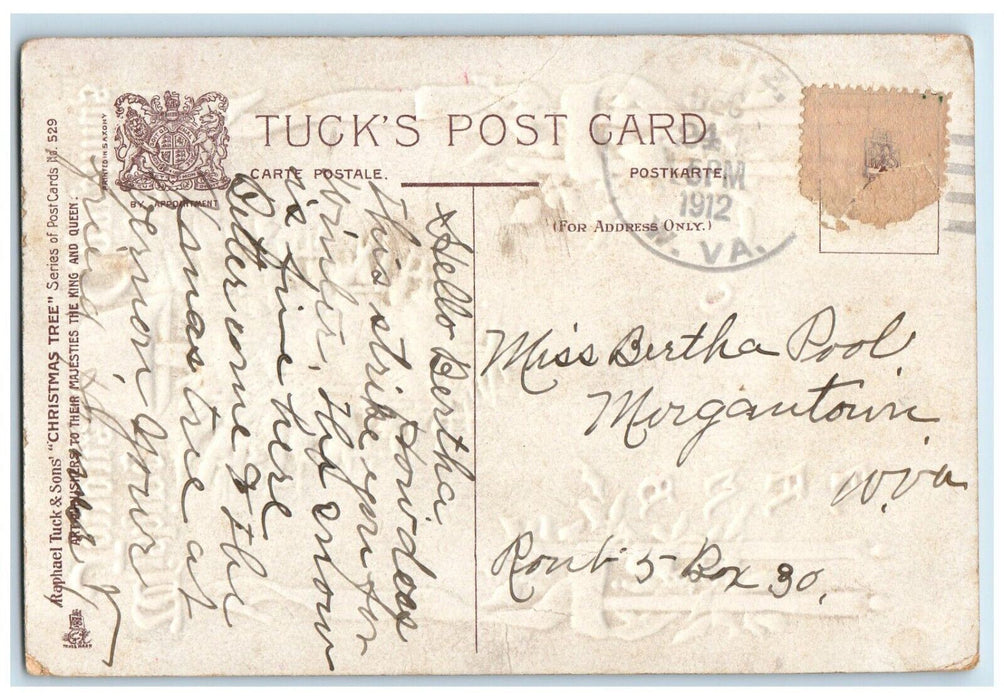 TUCK'S POST CARD.
CARTE POSTALE.
POSTKARTE.
BY APPOINTMENT
PRINTED IN SAXONY
(FOR ADDRESS ONLY.)
Raphael Tuck & Sons' "CHRISTMAS TREE" Series of Post Cards No. 529
ART PUBLISHERS TO THEIR MAJESTIES THE KING AND QUEEN.
DEC
24
5PM
1912
W. VA.
Hello Bertha
how does
this strike you for
winter, the snow
is fine here
Better come to the
Xmas tree at
Vernon, your
friend
Miss Bertha Pool
Morgantown
W. Va
Rout 5 Box 30.